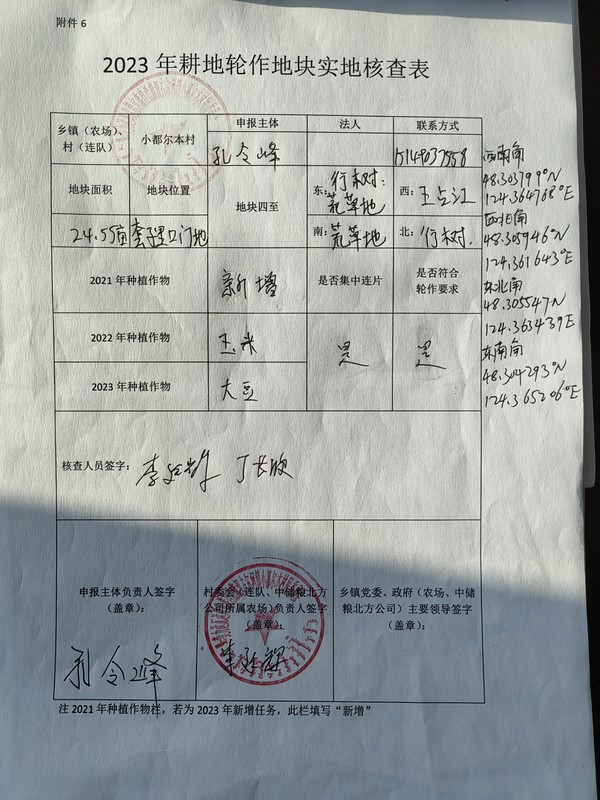 附件 6
2023 年耕地轮作地块实地核查表
乡镇（农场）、村（连队）
小都尔本村
申报主体
法人
联系方式
孔令峰
地块面积
地块位置
地块四至
东：行树：荒草地
西：王占江
24.55亩
门地
南：荒草地
北：行树.
2021 年种植作物
新增
是否集中连片
是否符合轮作要求
2022 年种植作物
玉米
是
是
2023 年种植作物
大豆
核查人员签字：
丁长欣
申报主体负责人签字（盖章）：
村委会（连队、中储粮北方公司所属农场）负责人签字（盖章）：
乡镇党委、政府（农场、中储粮北方公司）主要领导签字（盖章）：
孔令峰
注 2021 年种植作物栏，若为 2023 年新增任务，此栏填写“新增”
西南角
48.303799°N
124.364768°E
西北角
48.305946°N
124.361643°E
东北角
48.305547°N
124.363439°E
东南角
48.304293°N
124.365206°E